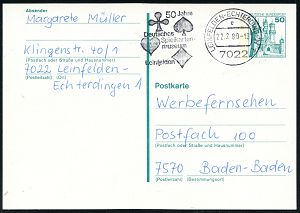 Absender
Margarete Müller
Klingenstr. 40/1
(Postfach oder Straße und Hausnummer)
7022 Leinfelden-
(Postleitzahl) (Ort)
Echterdingen 1
50 Jahre
Deutsches
Spielkarten-
museum
Leinfelden
LEINFELDEN-ECHTERDINGEN
22.2.80-13
7022
50
Postkarte
Werbefernsehen
Postfach 100
(Postfach oder Straße und Hausnummer)
7570 Baden-Baden
(Postleitzahl) (Bestimmungsort)